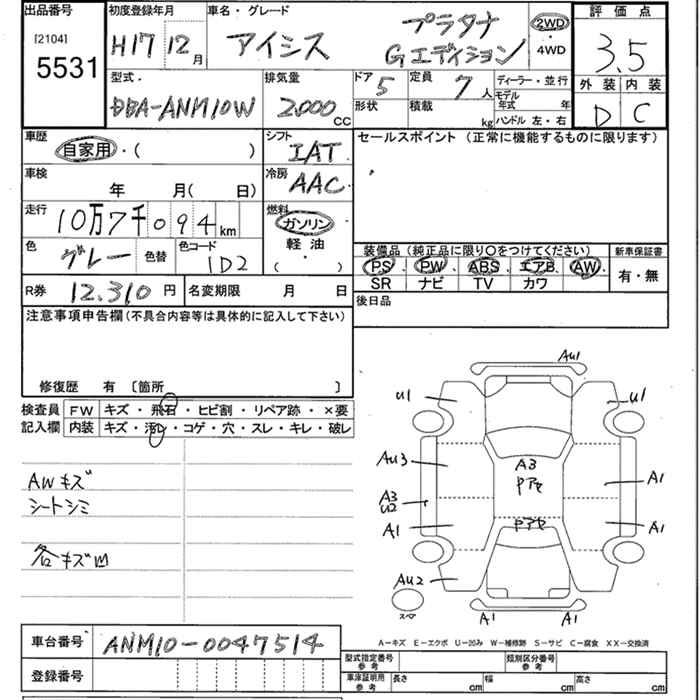 出品番号 初度登録年月 車名・グレード 評価点
[2104] H17 12月 アイシス プラタナ Gエディション 2WD・4WD 3.5
5531
型式. 排気量 ドア 5 定員 7人 ディーラー・並行 外装 内装
DBA-ANM10W 2000CC 形状 積載 kg モデル年式 年 D C
ハンドル 左・右
車歴 シフト セールスポイント(正常に機能するものに限ります)
自家用・( ) IAT
車検 冷房
年 月( 日) AAC
走行 燃料
10万7千094km ガソリン
色 グレー 色替 色コード 1D2 軽油
( ・ )
装備品(純正品に限り○をつけてください) 新車保証書
PS. PW. ABS. エアB. AW. 有・無
SR ナビ TV カワ
R券 12,310円 名変期限 月 日 後日品
注意事項申告欄(不具合内容等は具体的に記入して下さい)
修復歴 有 〔箇所 〕
検査員 FW キズ・飛石・ヒビ割・リペア跡・×要
記入欄 内装 キズ・汚れ・コゲ・穴・スレ・キレ・破レ
AWキズ
シートシミ
各キズ凹
AU1
U1 U1
AU3 A3 A1
A3
U2
A1 A1
AU2
スペア A1 A1
A-キズ E-エクボ U-凹み W-補修跡 S-サビ C-腐食 XX-交換済
車台番号 ANM10-0047514
登録番号
型式指定番号 参考 類別区分番号 参考
車庫証明用 参考 長さ cm 幅 cm 高さ cm